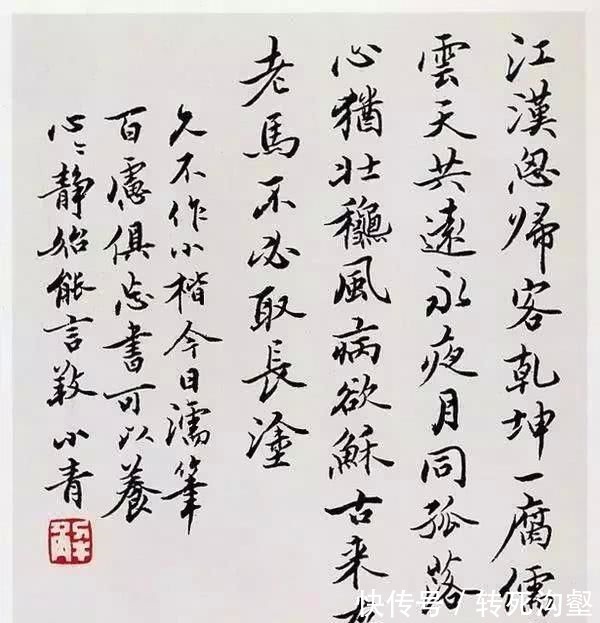 江漢思歸客乾坤一腐儒
雲天共遠永夜月同孤落
心猶壯龝風病欲穌古来
老馬不必取長塗
久不作小楷今日濡筆
百慮俱忘書可以養
心〻靜始能言小青
快传号 / 转死沟壑